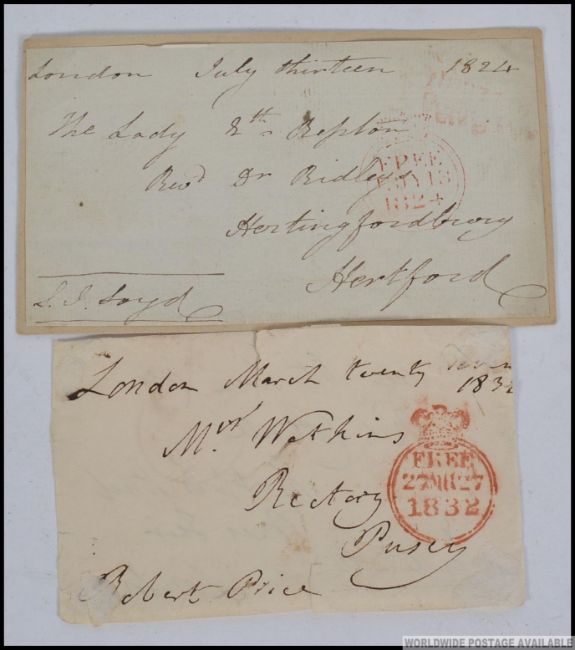 London July thirteen 1824
The Lady Eth. Repton
Revd Dr Ridleys
Hertingfordbury
Hertford
FREE
13 JY 13
1824
S. J. Loyd
London March twenty seven
1832
Mrs Watkins
Rectory
Pusey
Robert Price
FREE
27 MR 27
1832
WORLDWIDE POSTAGE AVAILABLE